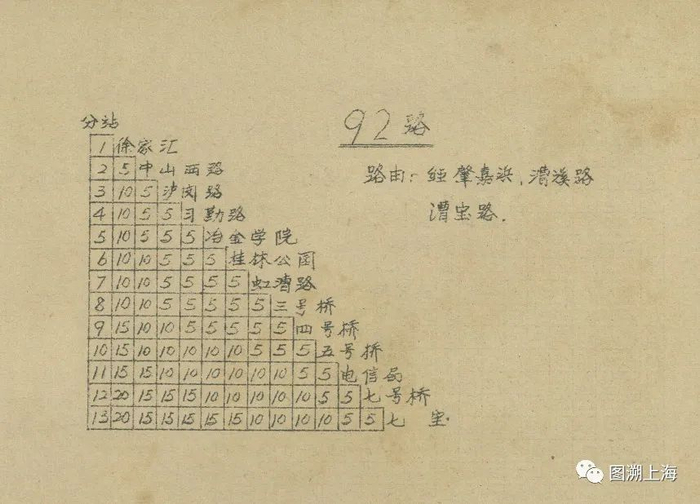 92路
分站
1 徐家汇
2 5 中山西路
3 10 5 沪闵路
4 10 5 5 习勤路
5 10 5 5 5 冶金学院
6 10 10 5 5 5 桂林公园
7 10 10 5 5 5 5 虹漕路
8 10 10 5 5 5 5 5 三号桥
9 15 10 10 5 5 5 5 5 四号桥
10 15 10 10 10 10 5 5 5 五号桥
11 15 15 10 10 10 10 10 5 5 电信局
12 20 15 15 15 10 10 10 10 5 5 七号桥
13 20 15 15 15 15 10 10 10 10 5 5 七宝
路由: 经肇嘉浜, 漕溪路
漕宝路.
图溯上海